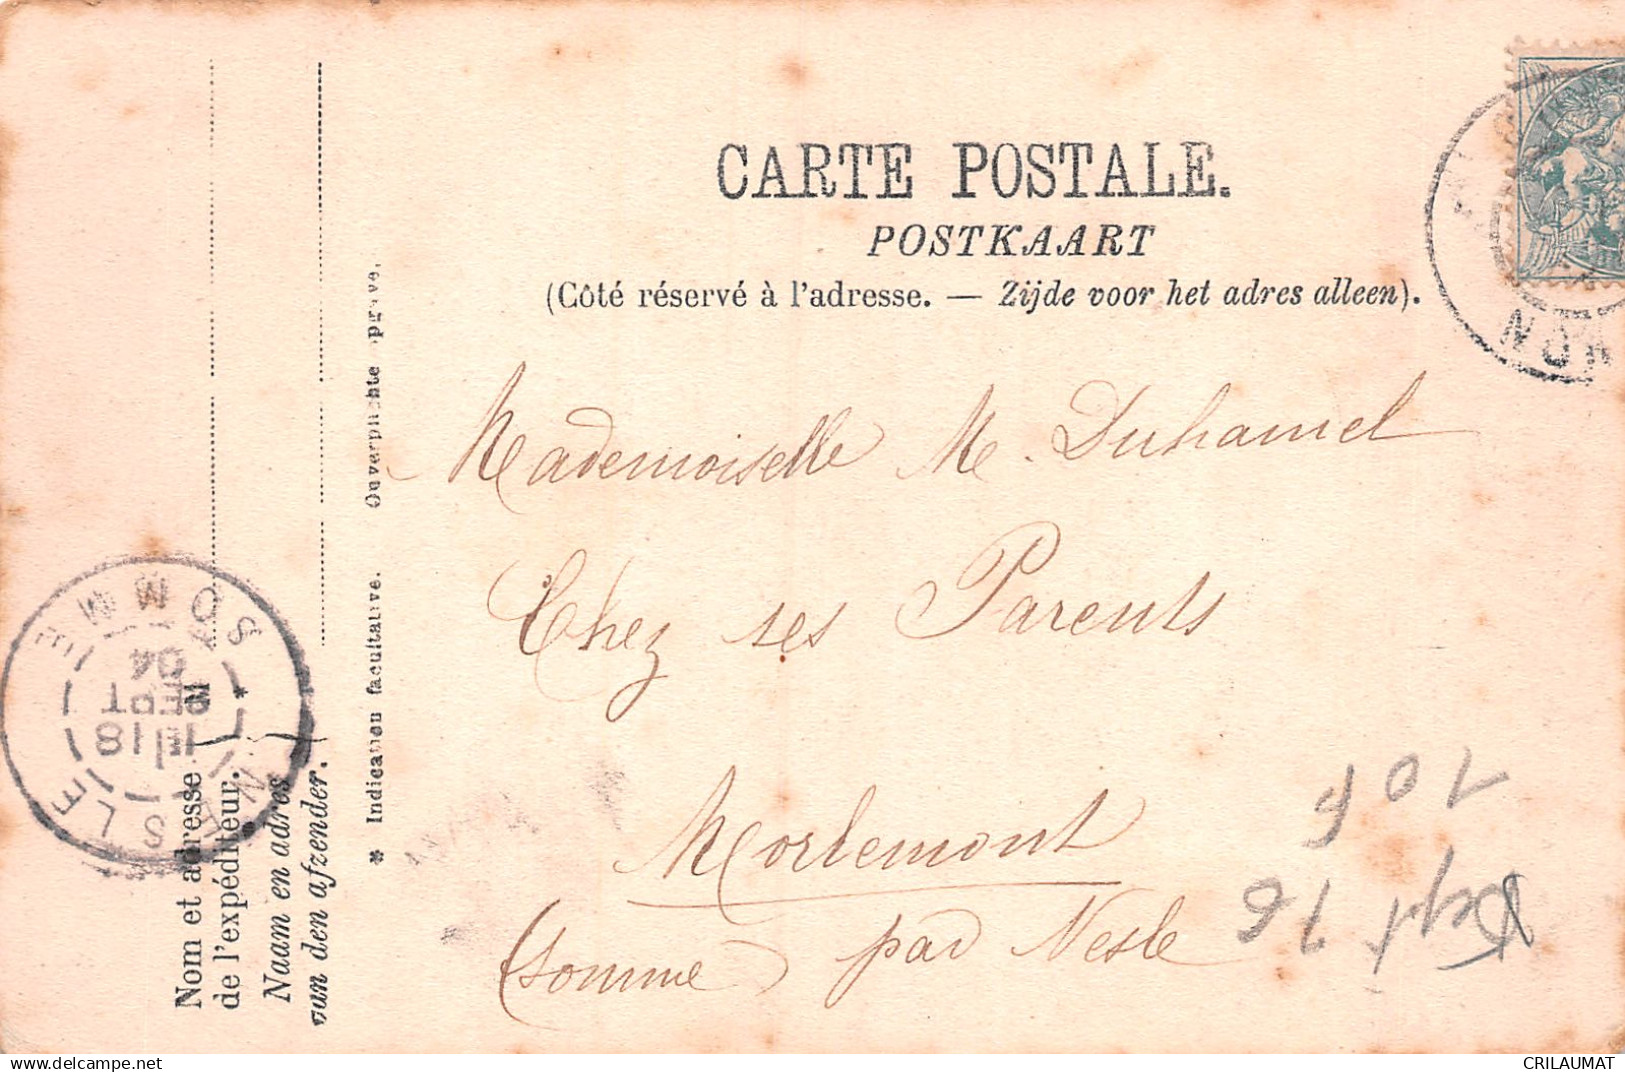 CARTE POSTALE.
POSTKAART
(Côté réservé à l'adresse. — Zijde voor het adres alleen).
Mademoiselle M. Duhamel
Chez ses Parents
Morlemont
(Somme) par Nesle
10 F
Dept 76
NESLE
SOMME
18
SEPT
04
NOR
M
Nom et adresse
de l'expéditeur.
Naam en adres
van den afzender.
* Indication facultative. Ouverplichte opgave.
delcampe.net
CRILAUMAT